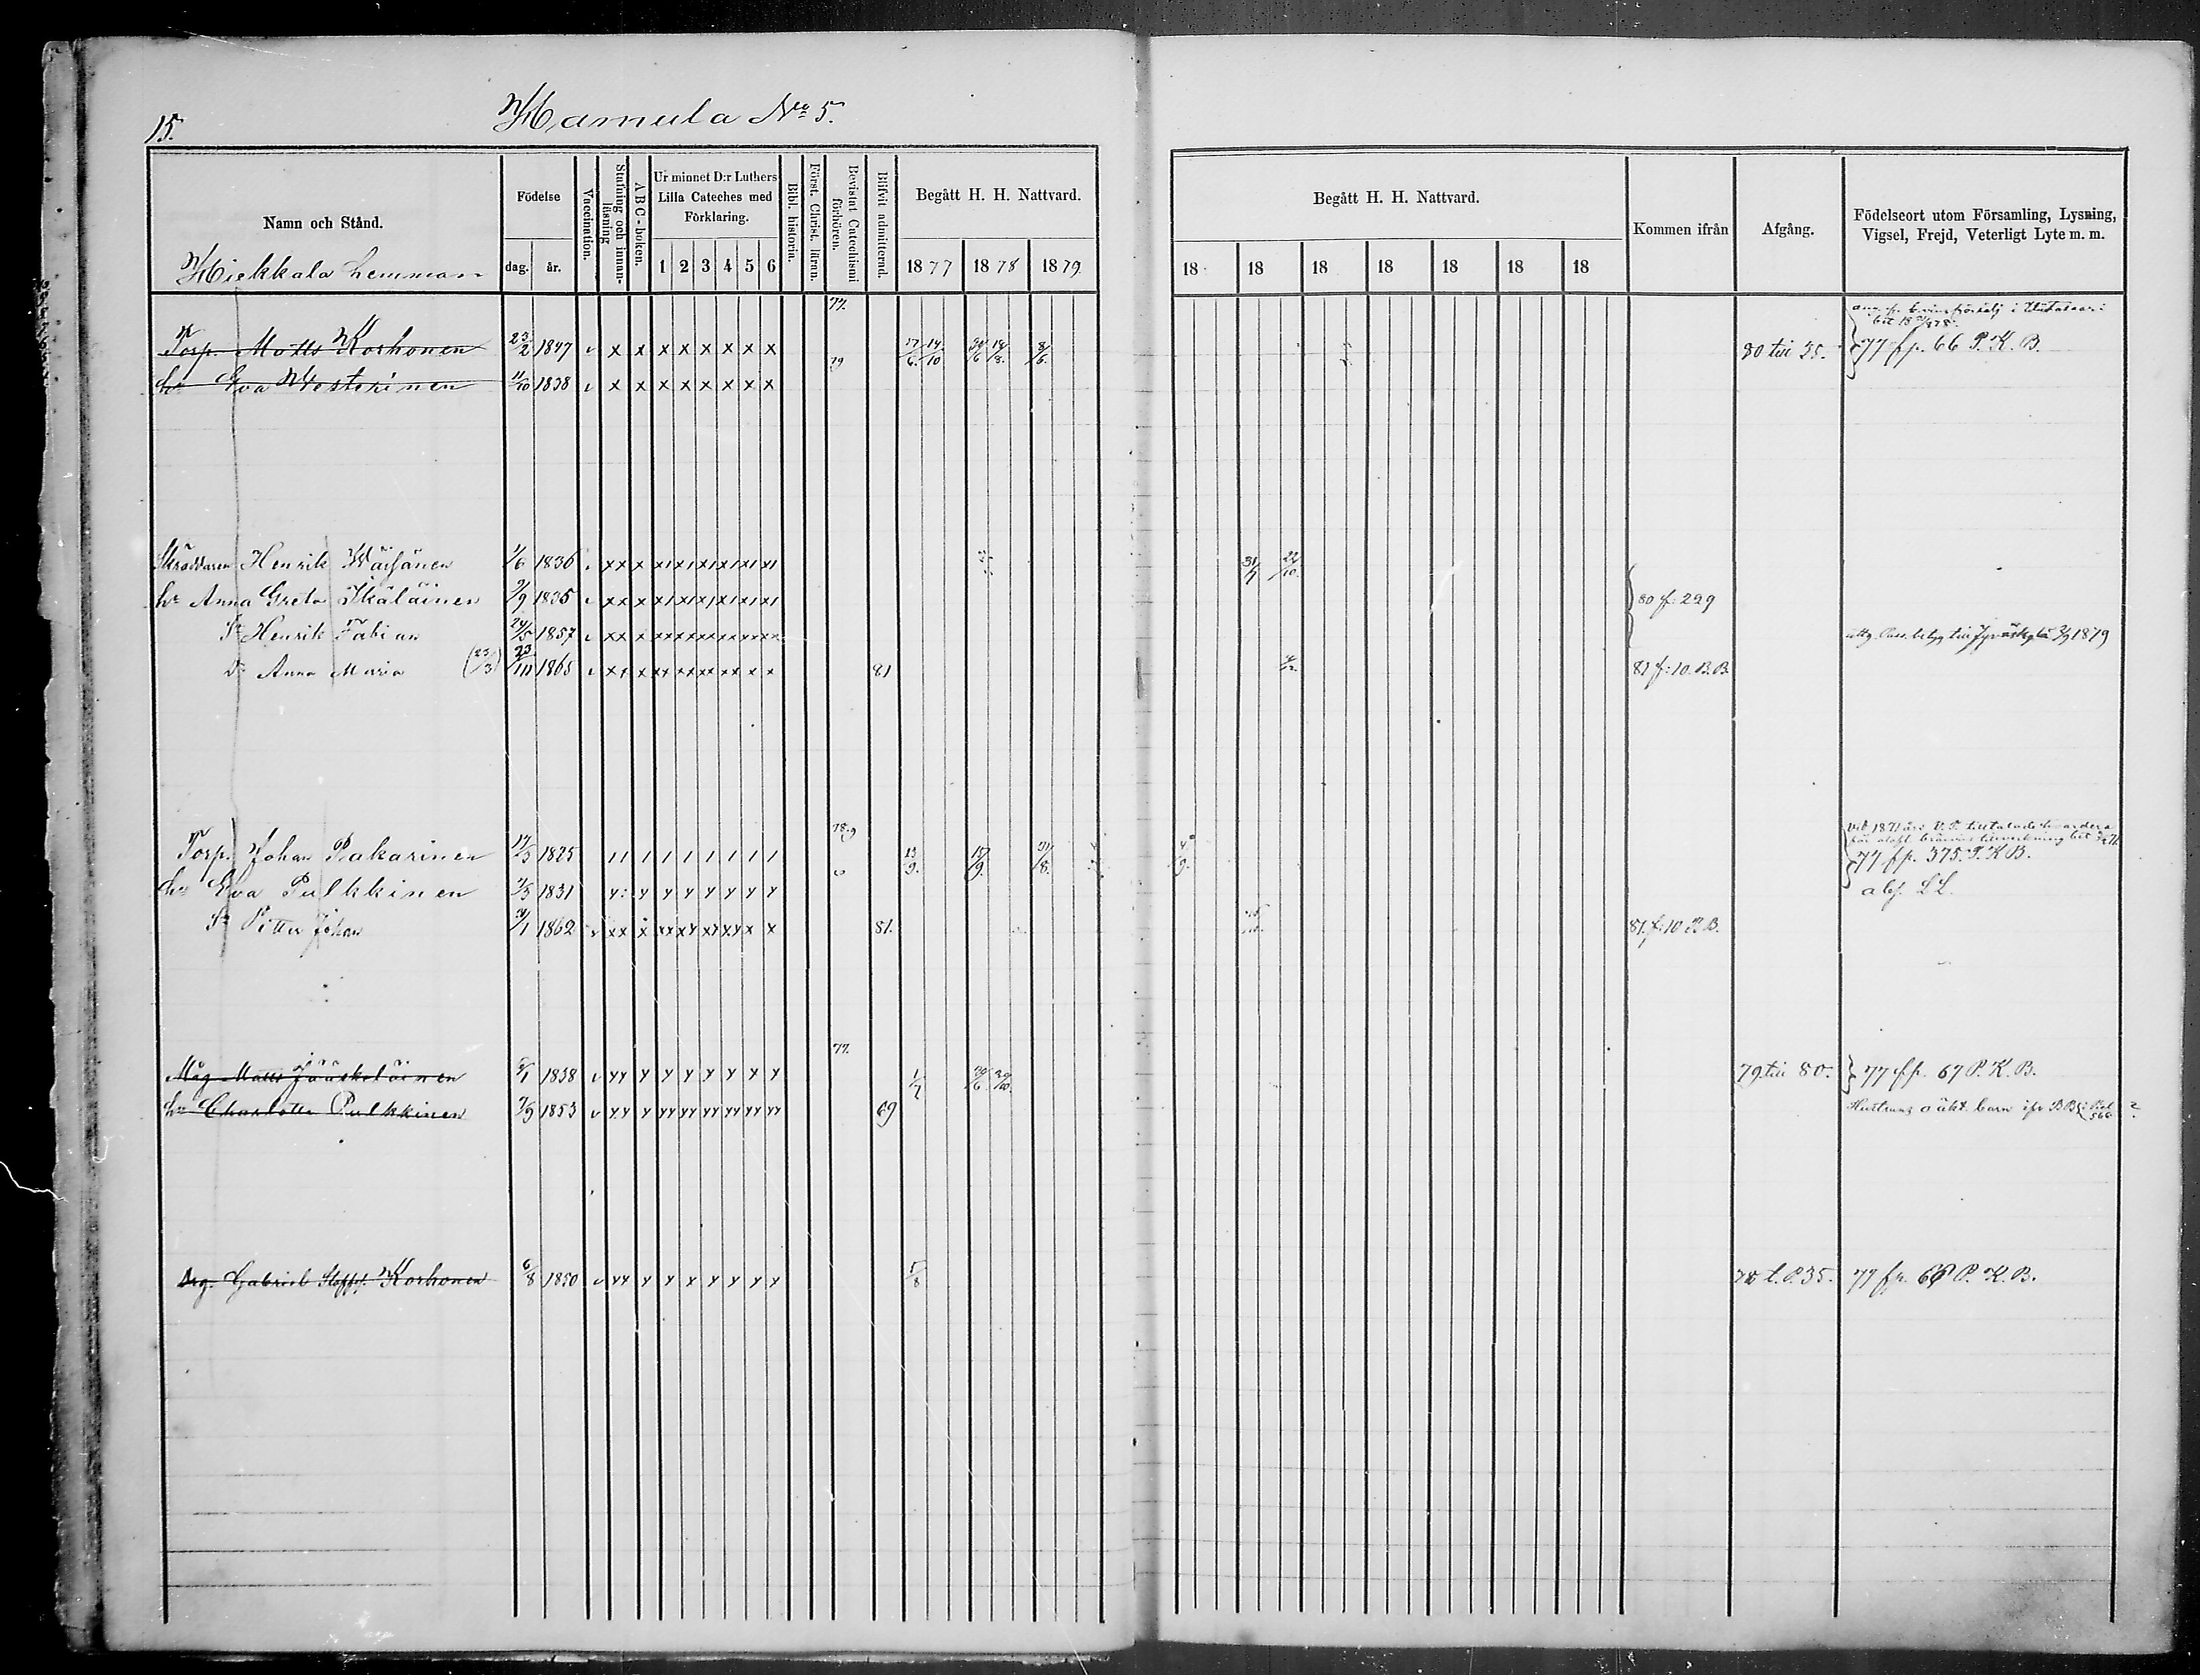 15.
Hamula No 5.
Namn och Stånd.
Hiekkala hemman
Födelse
dag. år.
Vaccination.
Stafning och innan-läsning
ABC-boken.
Ur minnet D:r Luthers Lilla Cateches med Förklaring.
1 2 3 4 5 6
Bibl. historia.
Först. Christ. läran.
Bevistat Catechismi förhören.
Blifvit admitterad.
Begått H. H. Nattvard.
1877 1878 1879
Begått H. H. Nattvard.
18 18 18 18 18 18 18
Kommen ifrån
Afgång.
Födelseort utom Församling, Lysning, Vigsel, Frejd, Veterligt Lyte m. m.
77.
Torp. Matts Korhonen 23/2 1847 v x x x x x x x x 17/6 14/10 8/6 80 till 35. 77 fp. 66 P. K. B.
79
hu Eva Westerinen 11/10 1838 v x x x x x x x x
Skräddaren Henrik 1/6 1836 xx x x1 x1 x1 x1 x1 x1 31/7 22/10
hu Anna Greta Ikäläinen 2/9 1835 v xx x x1 x1 x1 x1 x1 x1 80 f: 229
Sn Henrik Fabian 24/5 1857 v xx x xx xx xx xx xx xx till Jyväskylä 1879
Dr Anna Maria (23/3) 23/11 1865 v xx x xx xx xx xx x x 81 81 f: 10. B.B.
78.9
Torp. Johan Pakarinen 17/3 1825 11 1 1 1 1 1 1 1 13/9. 15/9. 31/8. 77 fp. 375 P.K.B.
hu Eva Pulkkinen 2/3 1831 y: y y y y y y y abs. L L.
Sn Petter Johan 1862 v xx x xx xy xy xy x x 81. 81. f: 10 B B.
77.
Måg Matts Jääskeläinen 1838 v yy y y y y y x y 1/7 79 till 80. 77 fp. 67 P. K. B.
hu Charlotta Pulkkinen 7/9 1853 v yy y yy yy yy yy yy yy 69 Hustruns oäkt. barn ifr B.B.
Drg. Gabriel Korhonen 6/8 1850 v yy y y y y y y y 5/8 t. P. 35. 77 fp. P. K. B.